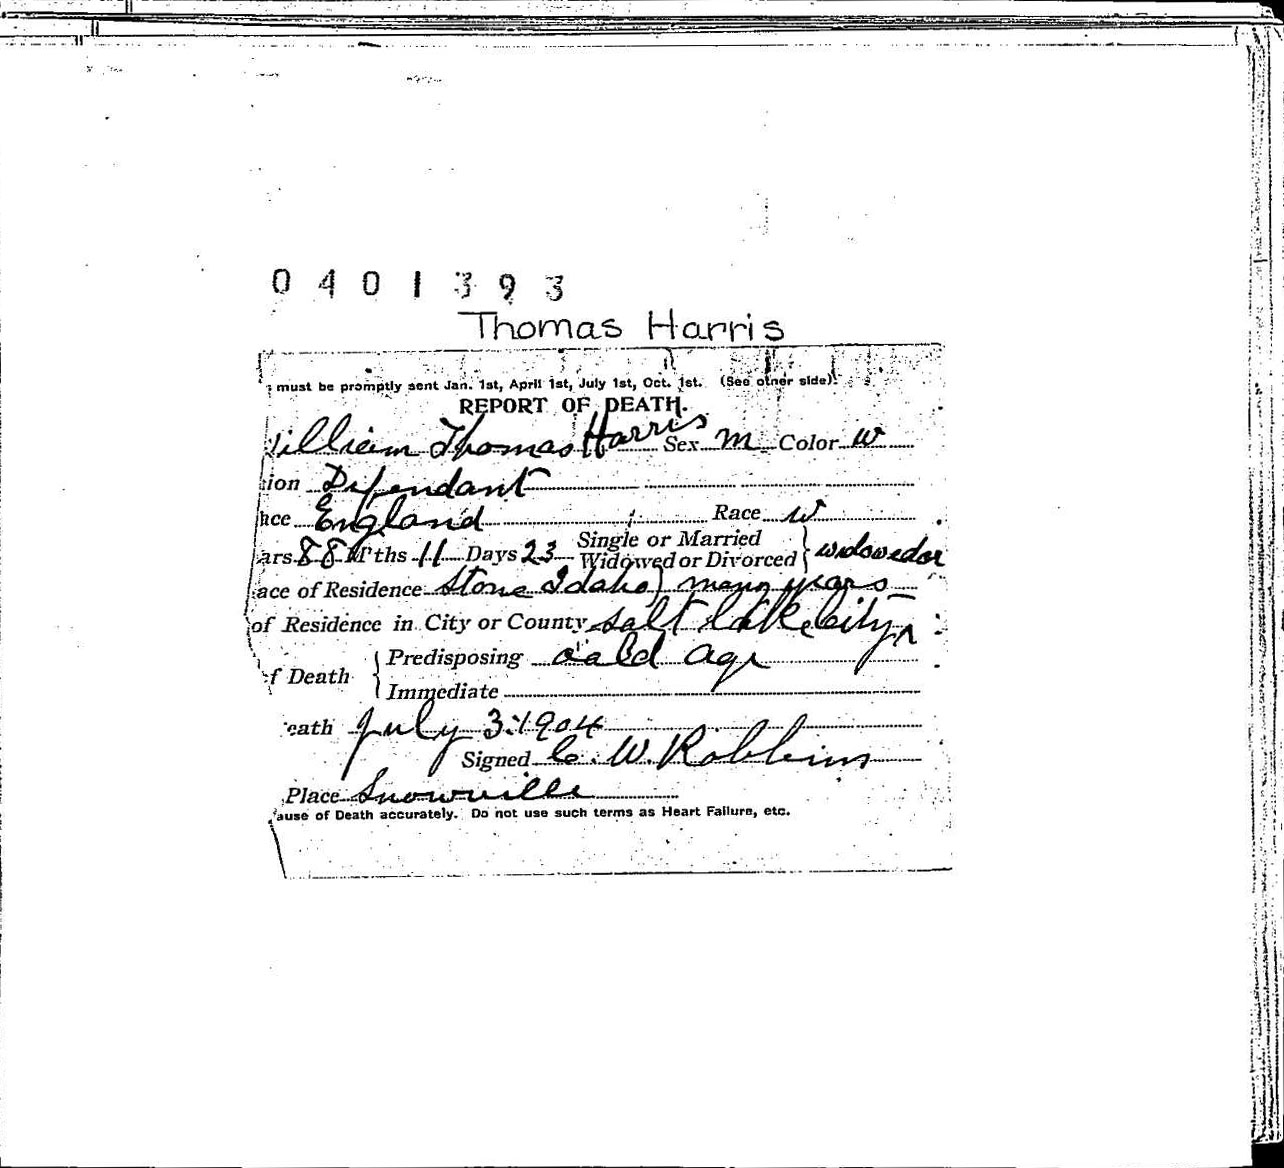 0401393
Thomas Harris
must be promptly sent Jan. 1st, April 1st, July 1st, Oct. 1st. (See other side).
REPORT OF DEATH.
illiam Thomas Harris Sex M Color W
ion Dependant
ace England Race W
ars 88 M'ths 11 Days 23 Single or Married Widowed or Divorced } widowedor
ace of Residence Stone Idaho) many years
of Residence in City or County Salt Lake City
f Death { Predisposing oald age
Immediate
eath July 3. 1904
Signed C. W. Robbins
Place Snowville
ause of Death accurately. Do not use such terms as Heart Failure, etc.